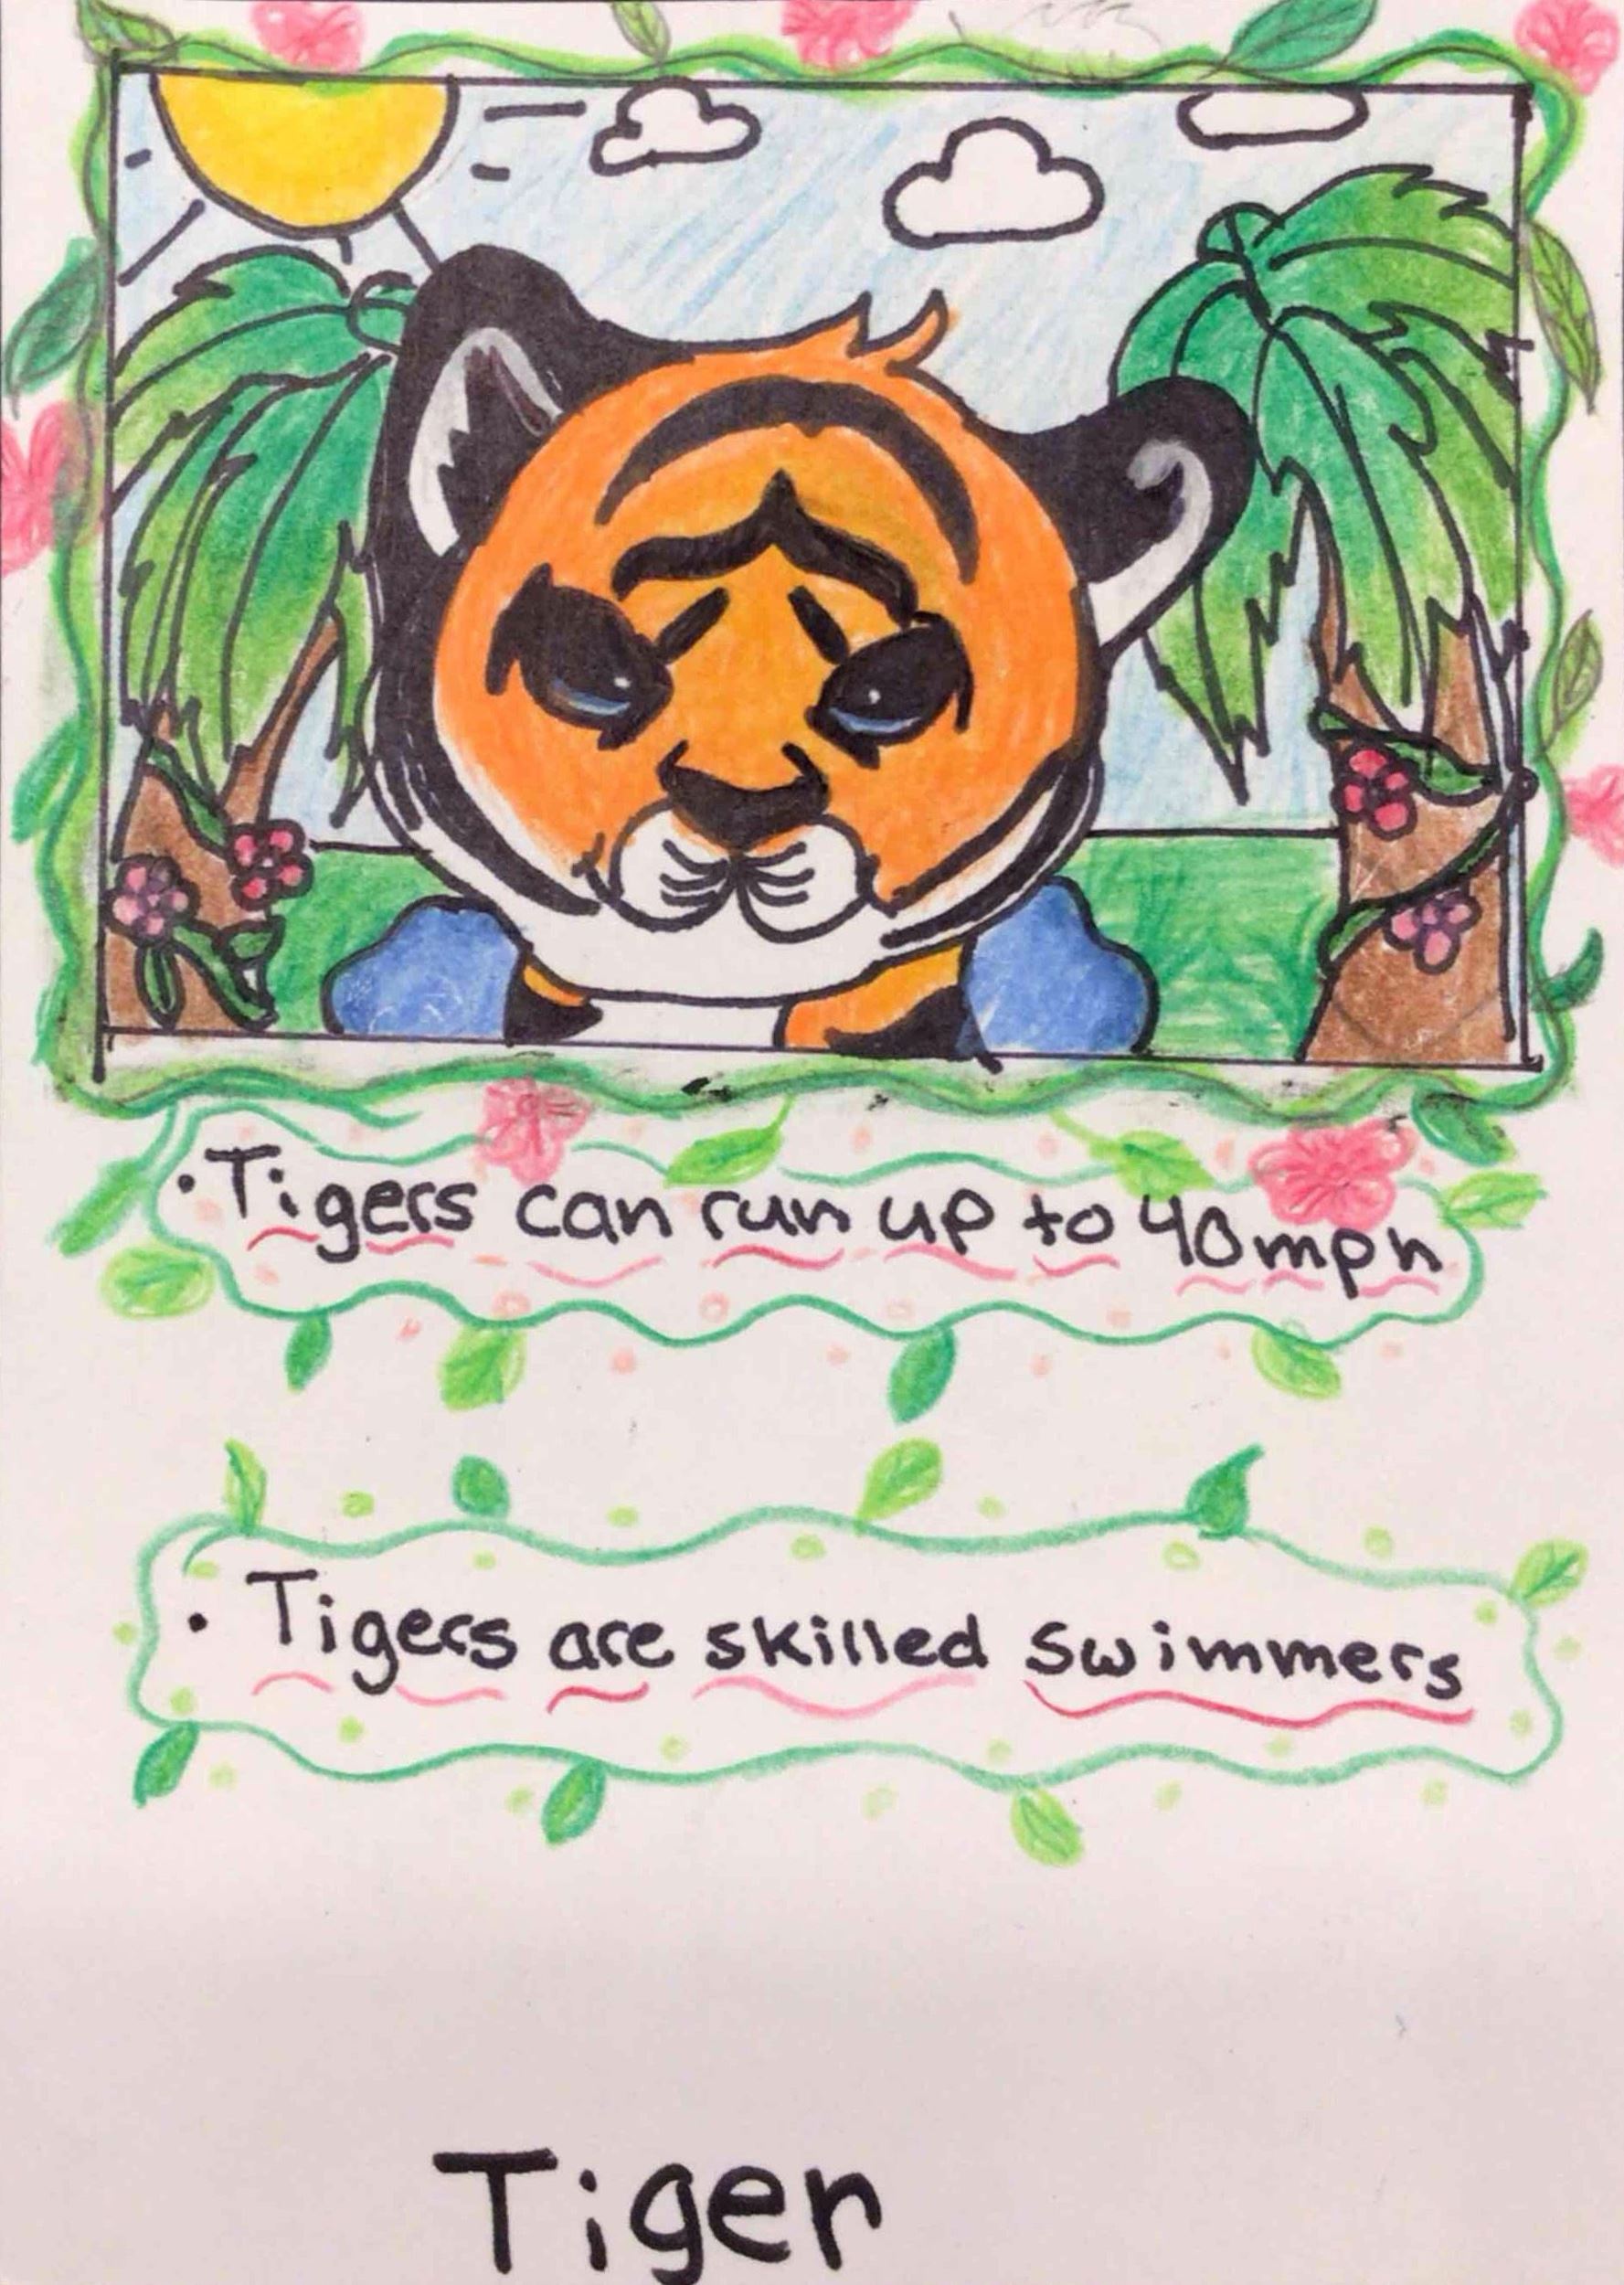 • Tigers can run up to 40mph
• Tigers are skilled swimmers
Tiger